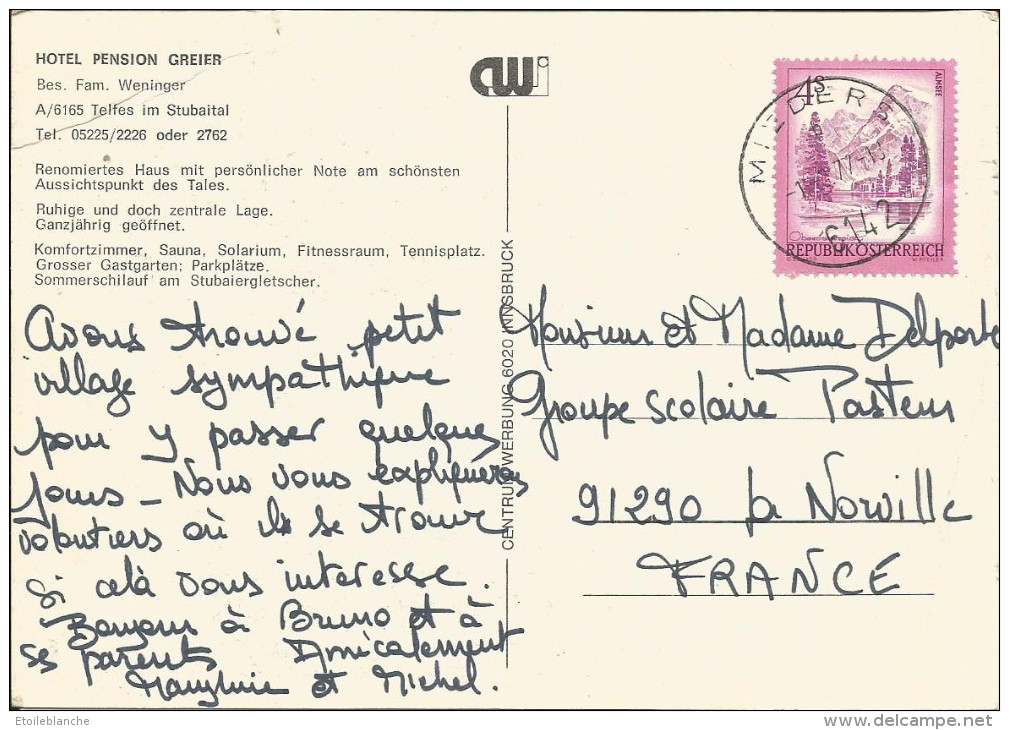 HOTEL PENSION GREIER
Bes. Fam. Weninger
A/6165 Telfes im Stubaital
Tel. 05225/2226 oder 2762
Renomiertes Haus mit persönlicher Note am schönsten
Aussichtspunkt des Tales.
Ruhige und doch zentrale Lage.
Ganzjährig geöffnet.
Komfortzimmer, Sauna, Solarium, Fitnessraum, Tennisplatz.
Grosser Gastgarten; Parkplätze.
Sommerschilauf am Stubaiergletscher.
Avons trouvé petit
village sympathique
pour y passer quelques
jours - Nous vous expliquerons
volontiers où ils se trouve
si celà vous interesse.
Bonjour à Bruno et à
ses parents Amicalement
et Michel.
CWj
CENTRUM WERBUNG 6020 INNSBRUCK
4S
ALMSEE
REPUBLIK ÖSTERREICH
MIEDERS
6142
Monsieur et Madame Delporte
Groupe Scolaire Pasteur
91290 La Norville
FRANCE
Etoileblanche
www.delcampe.net